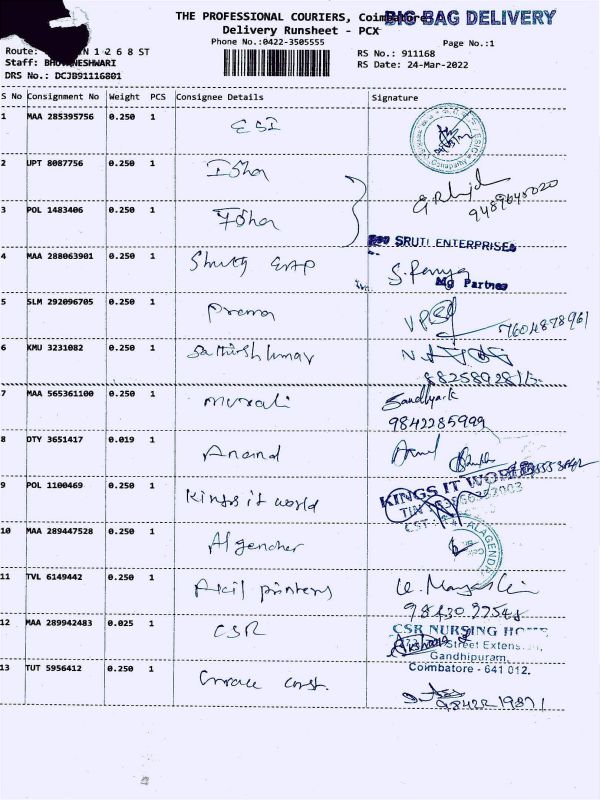 THE PROFESSIONAL COURIERS, Coimbatore
BIG BAG DELIVERY
Delivery Runsheet - PCX
Phone No.:0422-3505555
Page No.:1
Route: N 1 2 6 8 ST
RS No.: 911168
Staff: BHUVANESHWARI
RS Date: 24-Mar-2022
DRS No.: DCJB91116801
S No Consignment No Weight PCS Consignee Details Signature
1 MAA 285395756 0.250 1 ESI
2 UPT 8087756 0.250 1 Isha
9489645020
3 POL 1483406 0.250 1 Isha
SRUTI ENTERPRISES
4 MAA 288063901 0.250 1 Shruthi S. Ramya
Mg Partner
5 SLM 292096705 0.250 1 Prema
7604878961
6 KMU 3231082 0.250 1 Sathish kumar
7 MAA 565361100 0.250 1 murali Sandhya.k
9842285999
8 DTY 3651417 0.019 1 Anand
9 POL 1100469 0.250 1 Kings it world
KINGS IT WORLD
TIN
CST:
10 MAA 289447528 0.250 1 Algendher
ALAGENDRA
11 TVL 6149442 0.250 1 Akil printers
12 MAA 289942483 0.025 1 CSR
CSR NURSING HOME
Street Extension,
Gandhipuram,
Coimbatore - 641 012.
13 TUT 5956412 0.250 1 const.